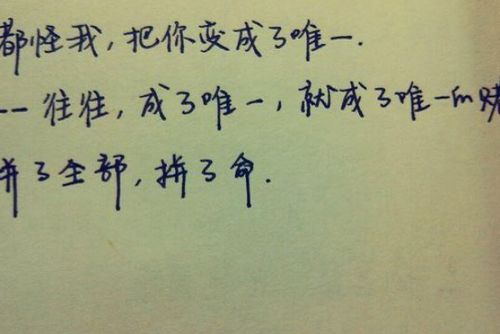 都怪我，把你变成了唯一.
--往往，成了唯一，就成了唯一的赌
拼了全部，拼了命.